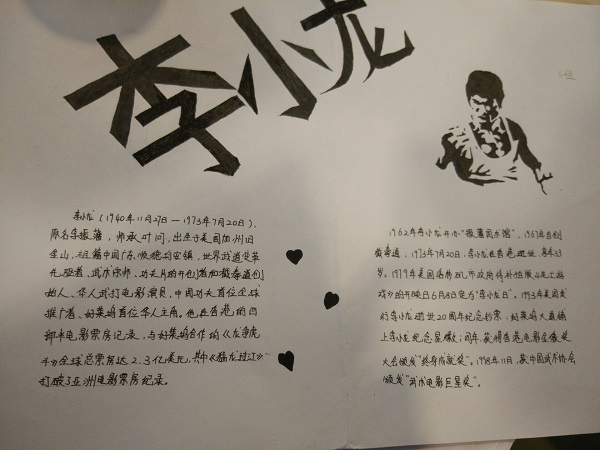 李小龙
李小龙（1940年11月27日—1973年7月20日），
原名李振藩，师承叶问，出生于美国加州旧
金山，祖籍中国广东顺德均安镇，世界武道变革
先驱者、武术宗师、功夫片的开创者和截拳道创
始人、华人武打电影演员，中国功夫首位全球
推广者、好莱坞首位华人主角。他在香港的四
部半电影票房记录，与好莱坞合作的《龙争虎
斗》全球总票房达2.3亿美元，其中《猛龙过江》
打破了亚洲电影票房纪录。
1962年李小龙开办“振藩国术馆”，1967年自创
截拳道，1973年7月20日，李小龙在香港逝世，享年33
岁。1979年美国洛杉矶市政府将补拍版《死亡游
戏》的开映日6月8日定为“李小龙日”。1993年美国发
行李小龙逝世20周年纪念钞票；好莱坞大道铺
上李小龙纪念星徽；同年，获得香港电影金像奖
大会颁发“终身成就奖”。1998年11月，获中国武术协会
颁发“武术电影巨星奖”。